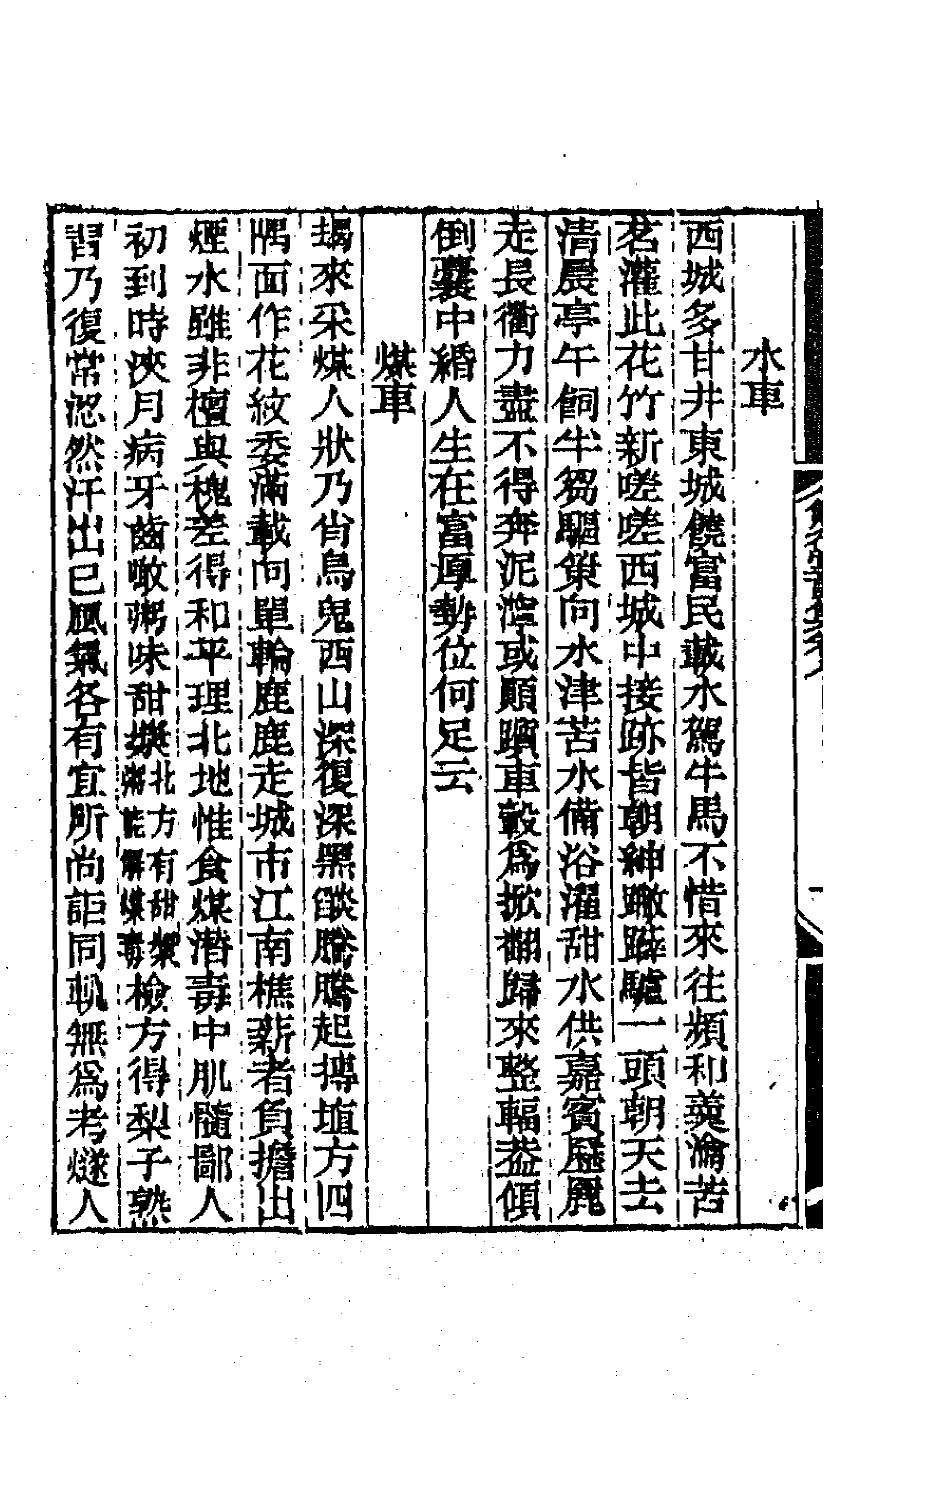 水車
西城多甘井東城饒富民載水駕牛馬不惜來往頻和羹瀹苦
茗灌此花竹新嗟嗟西城中接跡皆朝紳躈蹄驢一頭朝天去
清晨亭午飼牛芻驅策向水津苦水備浴濯甜水供嘉賓歷鹿
走長衢力盡不得奔泥濘或顚躓車轂爲掀翻歸來整輻盎傾
倒囊中緡人生在富厚勢位何足云
煤車
朅來采煤人狀乃肖鳥鬼西山深復深黑燄騰騰起摶埴方四
隅面作花紋委滿載向單輪鹿鹿走城市江南樵薪者負擔出
煙水雖非檀與槐差得和平理北地惟食煤潛毒中肌髓鄙人
初到時浹月病牙齒噉粥味甜漿北方有甜漿粥能解煤毒檢方得梨子熟
習乃復常忽然汗出已風氣各有宜所尚詎同軌無爲考燧人